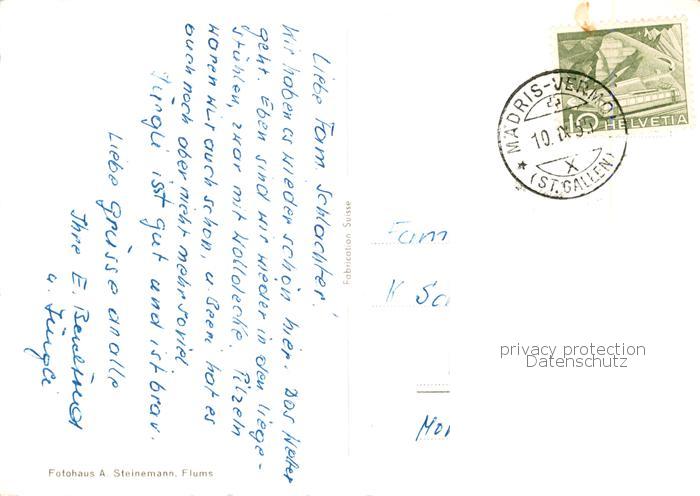 Liebe Fam. Schlachter!
Wir haben es wieder schön hier. Das Weter
geht. Eben sind wir wieder in den Liege-
stühlen, zwar mit Wolldecke. Pilzeln
waren wir auch schon, u. Beeri hat es
auch noch aber nicht mehr soviel
Jürgli isst gut und ist brav.
Liebe Grüsse an alle
Ihre E.
u. Jürgli
Fotohaus A. Steinemann, Flums
Fabrication Suisse
MÄDRIS-VERMOL
10. IX 5
X
(ST. GALLEN)
10 HELVETIA
Fam
K Sc
privacy protection
Datenschutz